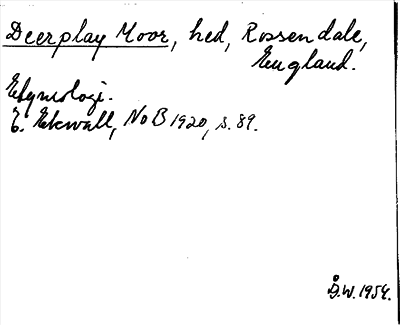 Deerplay Moor, hed, Rossendale,
England.
Etymologi.
E. Ekwall, NoB 1920, s. 89.
Å.W. 1954.